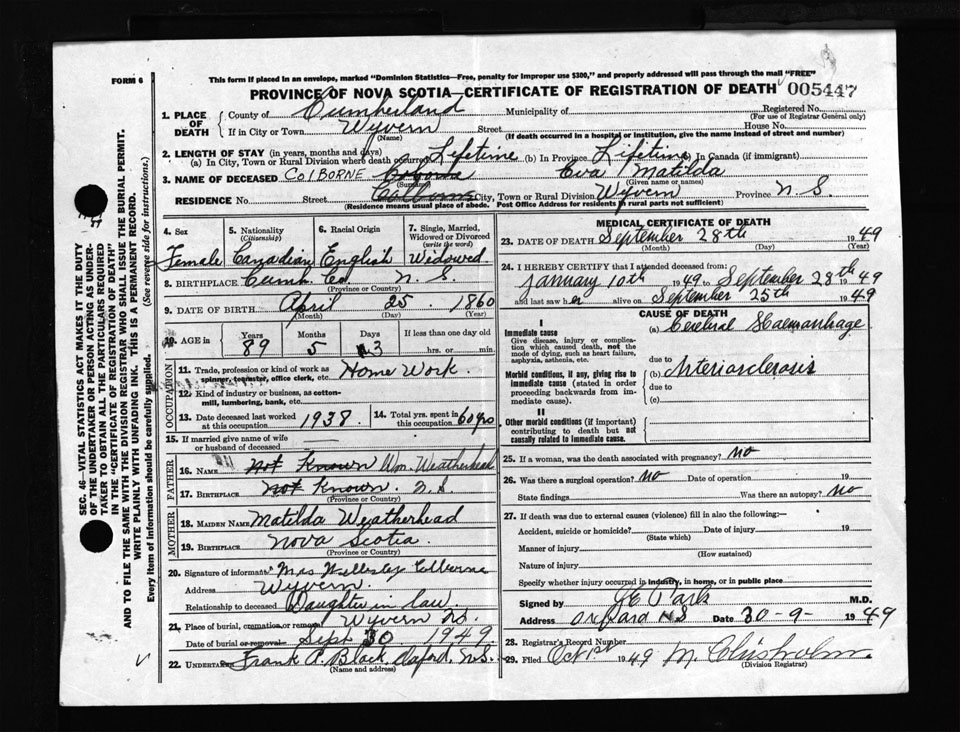 FORM 6
This form if placed in an envelope, marked "Dominion Statistics—Free, penalty for improper use $300," and properly addressed will pass through the mail "FREE"
PROVINCE OF NOVA SCOTIA—CERTIFICATE OF REGISTRATION OF DEATH 005447
1. PLACE OF DEATH
County of Cumberland Municipality of Registered No.
(For use of Registrar General only)
If in City or Town Wyvern Street House No.
(Name) (If death occurred in a hospital or institution, give the name instead of street and number)
2. LENGTH OF STAY (in years, months and days)
(a) In City, Town or Rural Division where death occurred Lifetime (b) In Province Lifetime (c) In Canada (if immigrant)
3. NAME OF DECEASED COLBORNE Eva Matilda
(Surname) (Given name or names)
RESIDENCE No. Street City, Town or Rural Division Wyvern Province N.S.
(Residence means usual place of abode. Post Office Address for residents in rural parts not sufficient)
4. Sex
Female
5. Nationality
(Citizenship)
Canadian
6. Racial Origin
English
7. Single, Married, Widowed or Divorced
(write the word)
Widowed
8. BIRTHPLACE Cumb. Co. N.S.
(Province or Country)
9. DATE OF BIRTH April 25 1860
(Month) (Day) (Year)
10. AGE in Years Months Days If less than one day old
89 5 3 hrs. or min.
OCCUPATION
11. Trade, profession or kind of work as spinner, teamster, office clerk, etc. Home Work.
12. Kind of industry or business, as cotton-mill, lumbering, bank, etc.
13. Date deceased last worked at this occupation 1938.
14. Total yrs. spent in this occupation 60 yrs
15. If married give name of wife or husband of deceased
FATHER
16. NAME Not Known Wm. Weatherhead
17. BIRTHPLACE Not Known. N.S.
(Province or Country)
MOTHER
18. MAIDEN NAME Matilda Weatherhead
19. BIRTHPLACE Nova Scotia.
(Province or Country)
20. Signature of informant Mrs Wellesley Colborne
Address Wyvern.
Relationship to deceased Daughter in law.
21. Place of burial, cremation or removal Wyvern N.S.
Date of burial or removal Sept 30 1949
22. UNDERTAKER Frank A. Black, Oxford, N.S.
(Name and address)
MEDICAL CERTIFICATE OF DEATH
23. DATE OF DEATH September 28th 1949
(Month) (Day) (Year)
24. I HEREBY CERTIFY that I attended deceased from:
January 10th 1949 to September 28th 1949
and last saw her alive on September 25th 1949
CAUSE OF DEATH
I
Immediate cause
Give disease, injury or complication which caused death, not the mode of dying, such as heart failure, asphyxia, asthenia, etc.
(a) Cerebral Haemorrhage
due to
Morbid conditions, if any, giving rise to immediate cause (stated in order proceeding backwards from immediate cause).
(b) Arteriosclerosis
due to
(c)
II
Other morbid conditions (if important) contributing to death but not causally related to immediate cause.
25. If a woman, was the death associated with pregnancy? no
26. Was there a surgical operation? no Date of operation 19
State findings Was there an autopsy? no
27. If death was due to external causes (violence) fill in also the following:—
Accident, suicide or homicide? Date of injury 19
(State which)
Manner of injury
(How sustained)
Nature of injury
Specify whether injury occurred in industry, in home, or in public place
Signed by G E Park M.D.
Address Oxford N S Date 30-9-1949
28. Registrar's Record Number
29. Filed Oct 1st 1949 M. Chisholm.
(Division Registrar)
SEC. 46—VITAL STATISTICS ACT MAKES IT THE DUTY
OF THE UNDERTAKER OR PERSON ACTING AS UNDER-
TAKER TO OBTAIN ALL THE PARTICULARS REQUIRED
IN THE "CERTIFICATE OF REGISTRATION OF DEATH"
AND TO FILE THE SAME WITH THE DIVISION REGISTRAR WHO SHALL ISSUE THE BURIAL PERMIT.
WRITE PLAINLY WITH UNFADING INK. THIS IS A PERMANENT RECORD.
Every item of information should be carefully supplied. (See reverse side for instructions.)